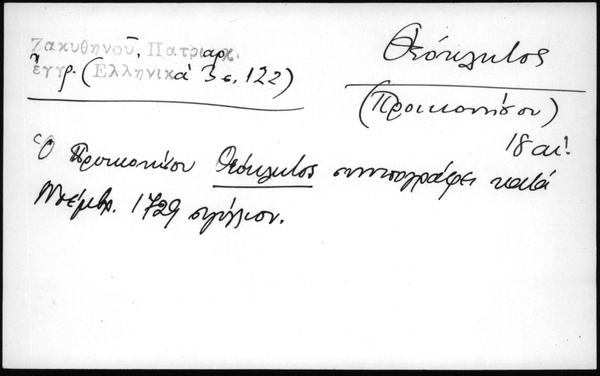 Ζακυθηνοῦ, Πατριαρχ.
ἔγγρ. (Ἑλληνικὰ 3 σ. 122)
Θεόκλητος
(Προικονήσου)
18 αἰ.
Ὁ Προικονήσου Θεόκλητος συνυπογράφει κατὰ
Νοέμβρ. 1729 σιγίλλιον.